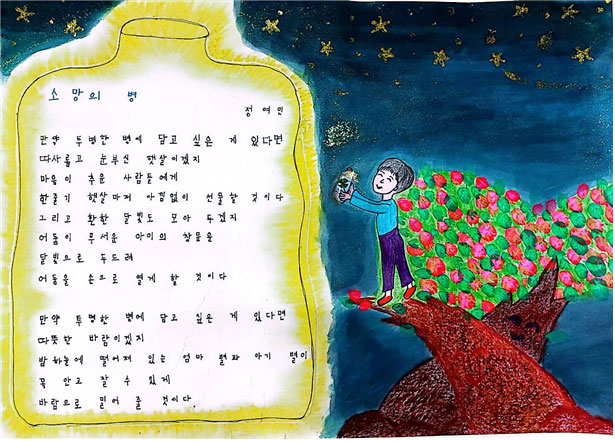 소망의 병
정여민
만약 투명한 병에 담고 싶은 게 있다면
따사롭고 눈부신 햇살이겠지
마음이 추운 사람들에게
한줄기 햇살마저 아낌없이 선물할 것이다
그리고 환한 달빛도 모아 두겠지
어둠이 무서운 아이의 창문을
달빛으로 두드려
어둠을 손으로 열게 할 것이다
만약 투명한 병에 담고 싶은 게 있다면
따뜻한 바람이겠지
밤하늘에 떨어져 있는 엄마 별과 아기 별이
꼭 안고 잘 수 있게
바람으로 밀어 줄 것이다